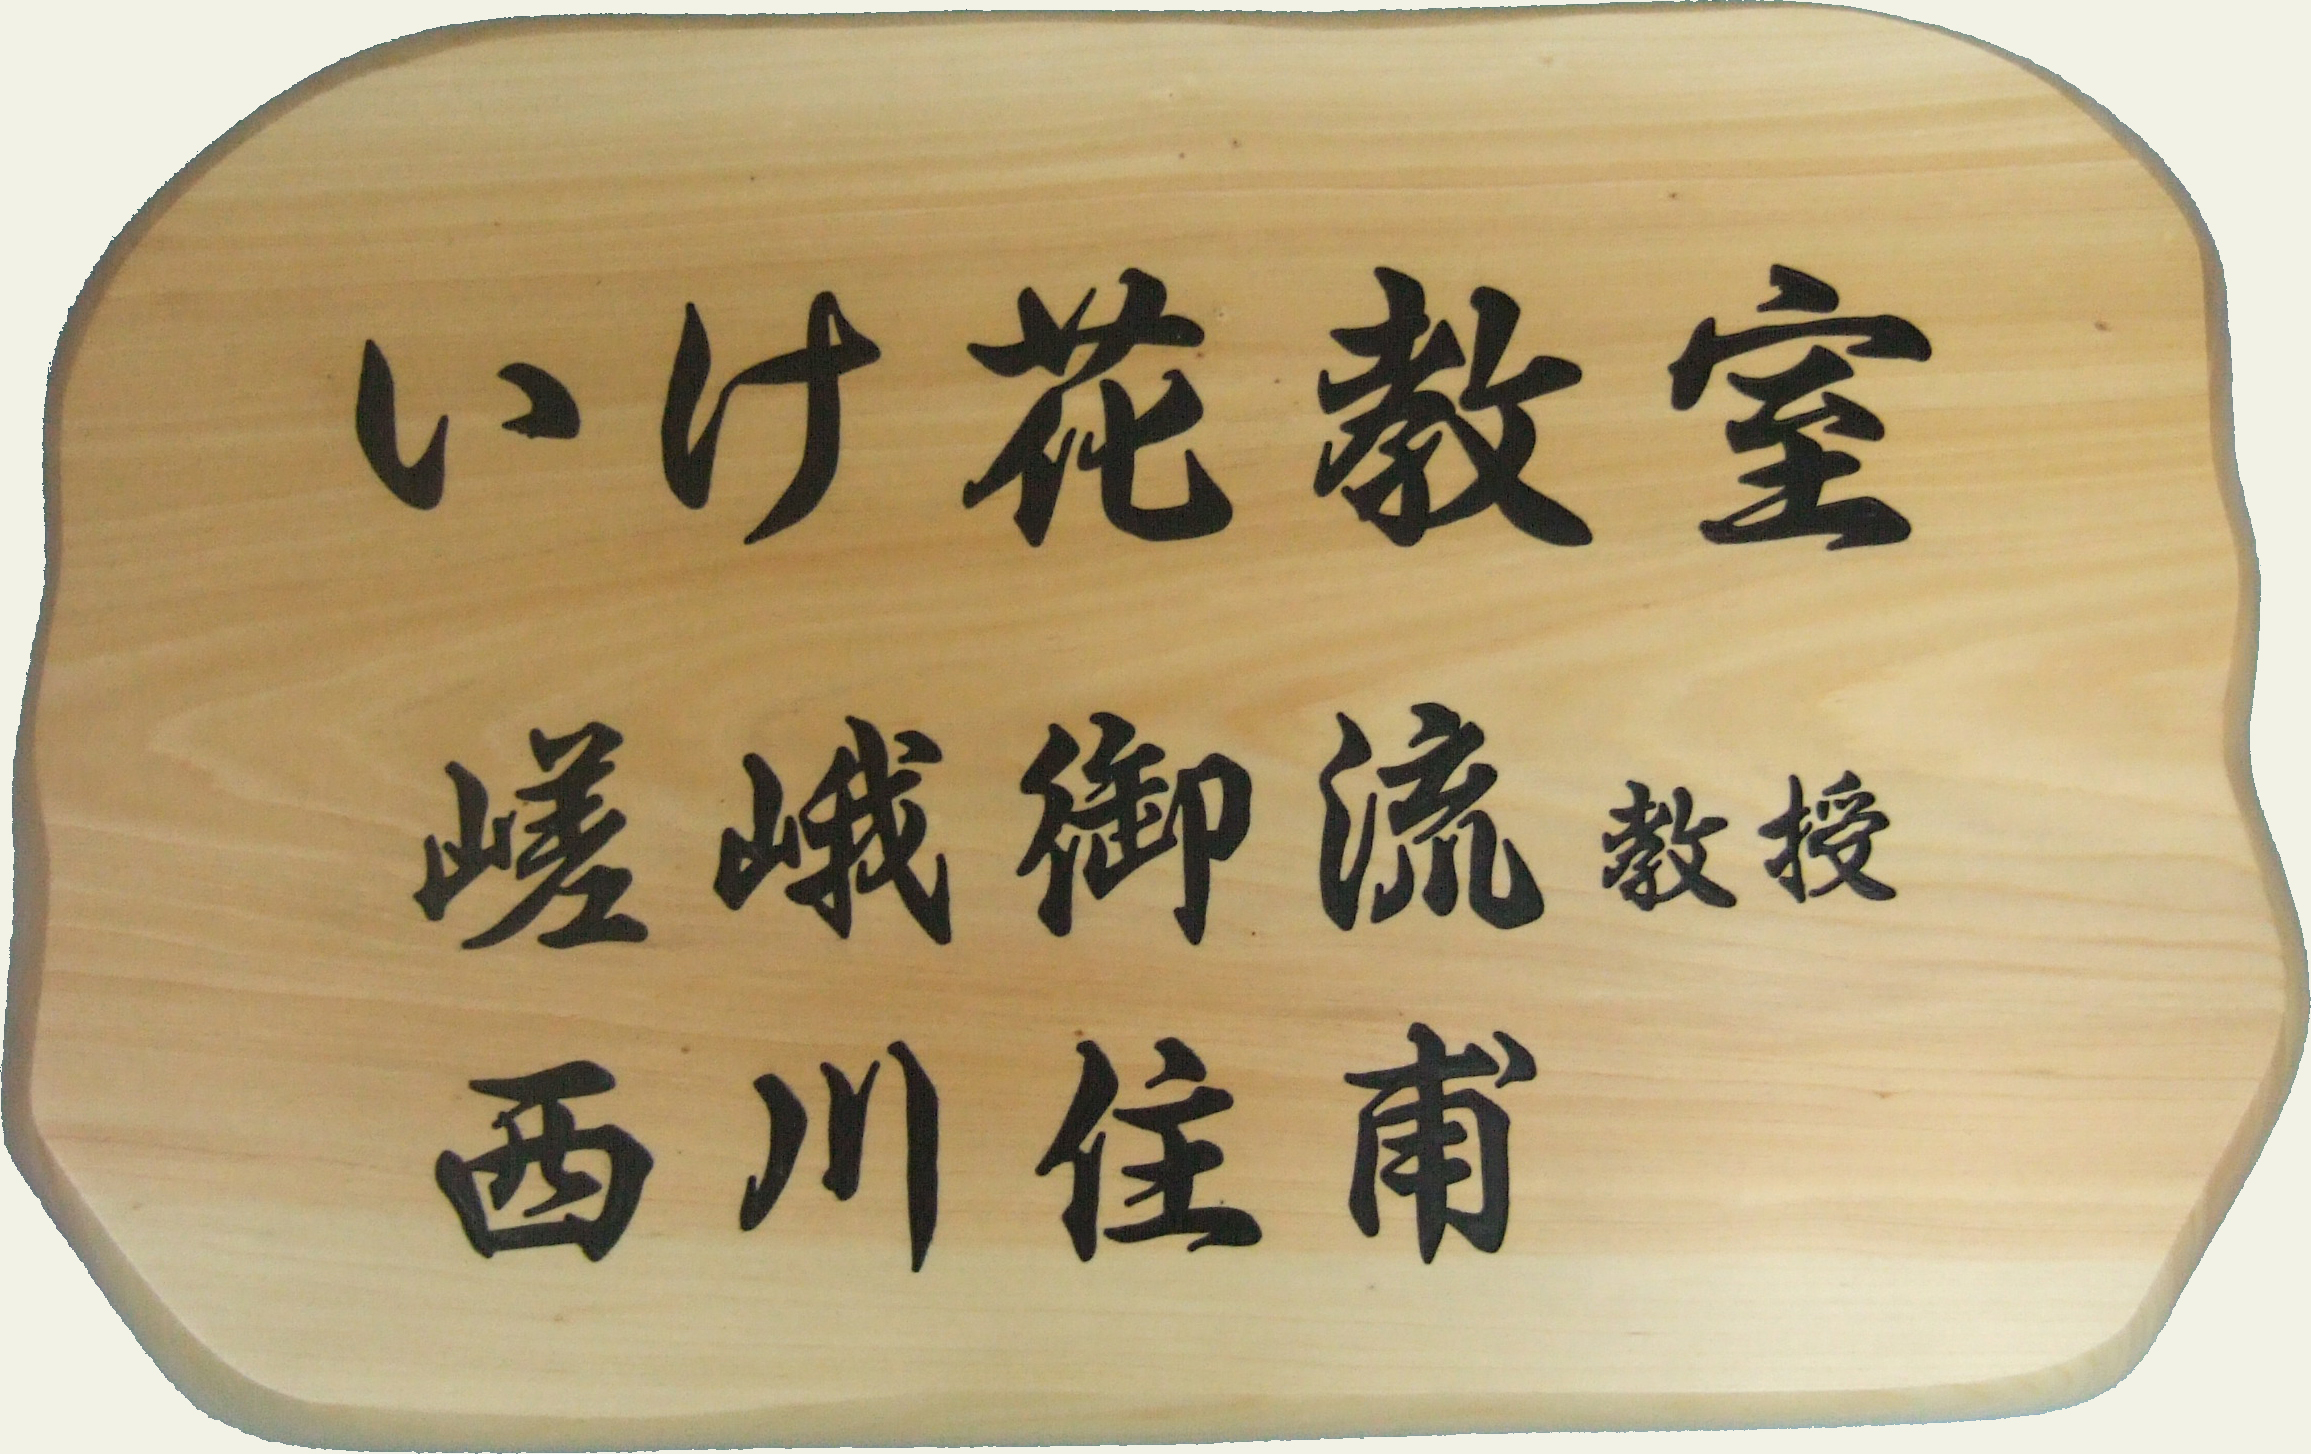 いけ花教室
嵯峨御流 教授
西川住甫